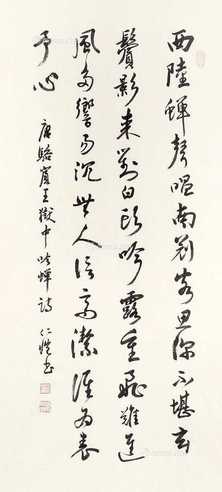 西陸蟬聲唱南冠客思深不堪玄
鬢影來對白頭吟露重飛難進
風多響易沉無人信高潔誰為表
予心
唐駱賓王獄中咏蟬詩 仁愷書